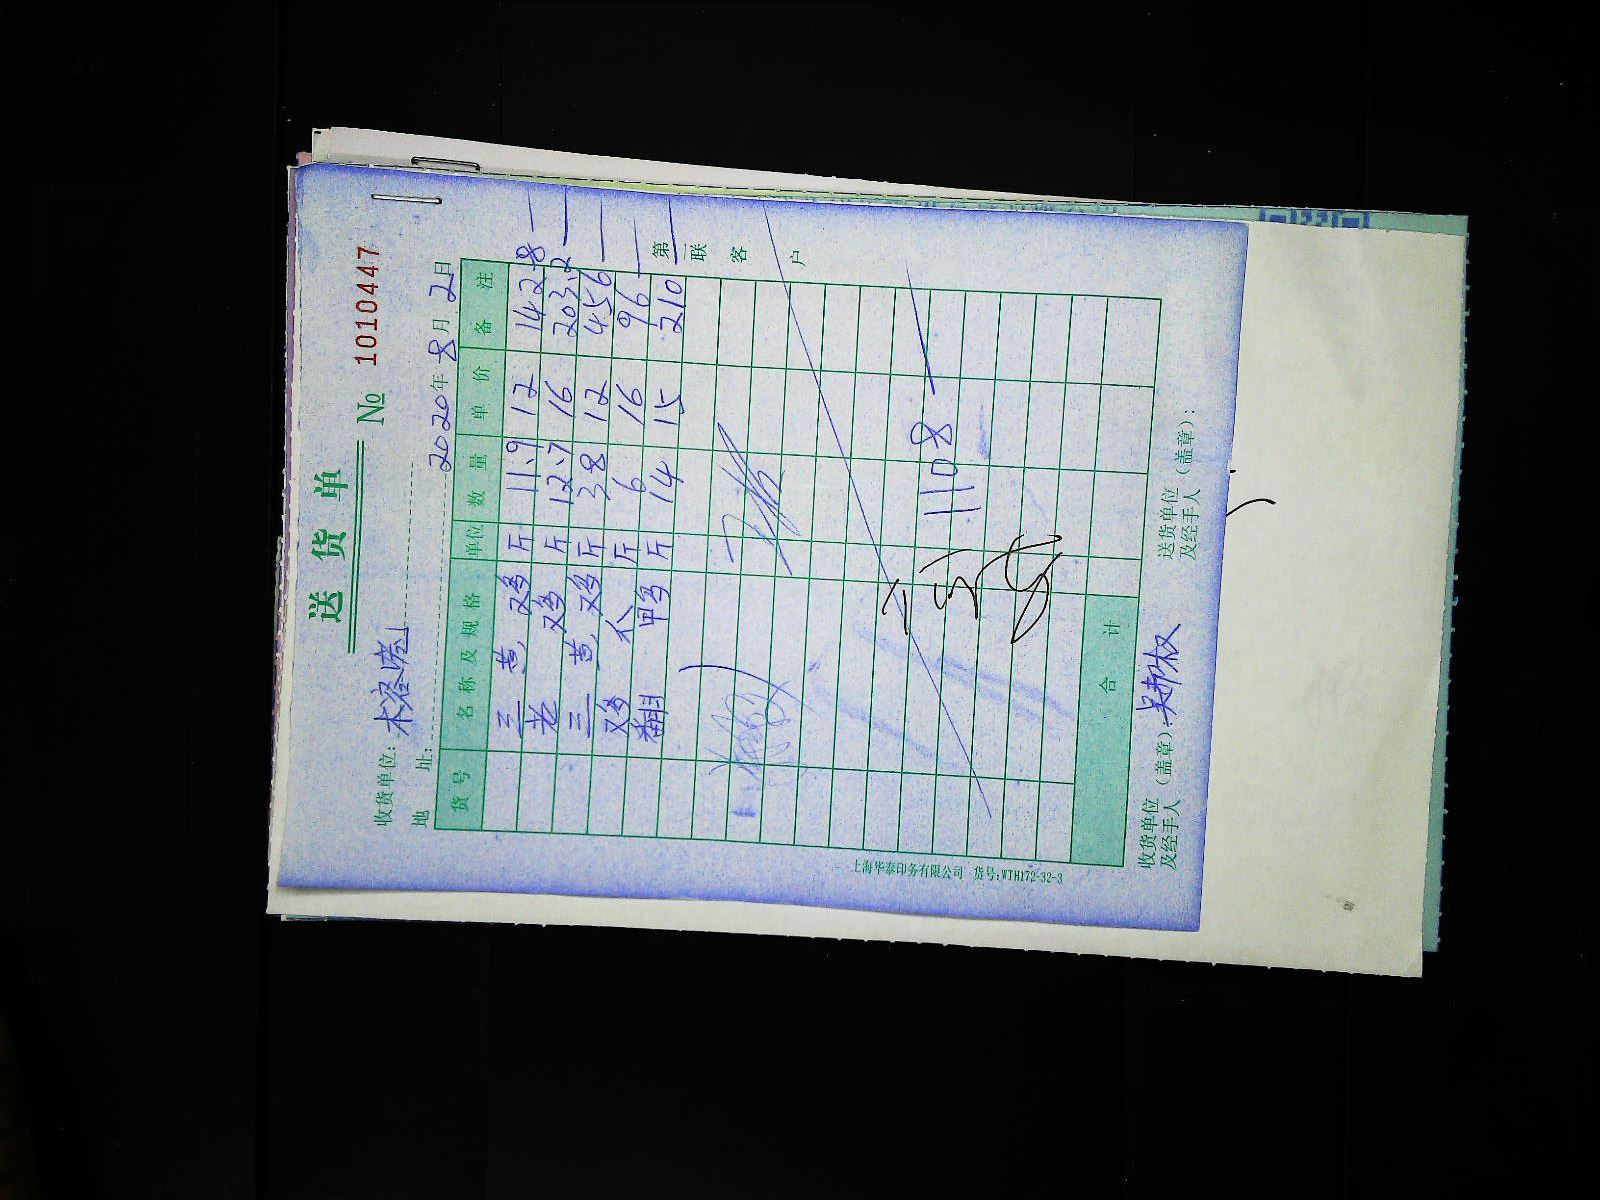 送 货 单
№ 1010447
收货单位:
地 址:
2020年 8月 2日
货号 名称及规格 单位 数量 单价 备注
三黄 斤 11.9 12 142.8
老 斤 12.7 16 203.2
三黄 斤 38 12 456
斤 6 16 96
斤 14 15 210
1108
合 计
第 联 客 户
收货单位及经手人(盖章):
送货单位及经手人(盖章):
上海华泰印务有限公司 货号:WTH172-32-3